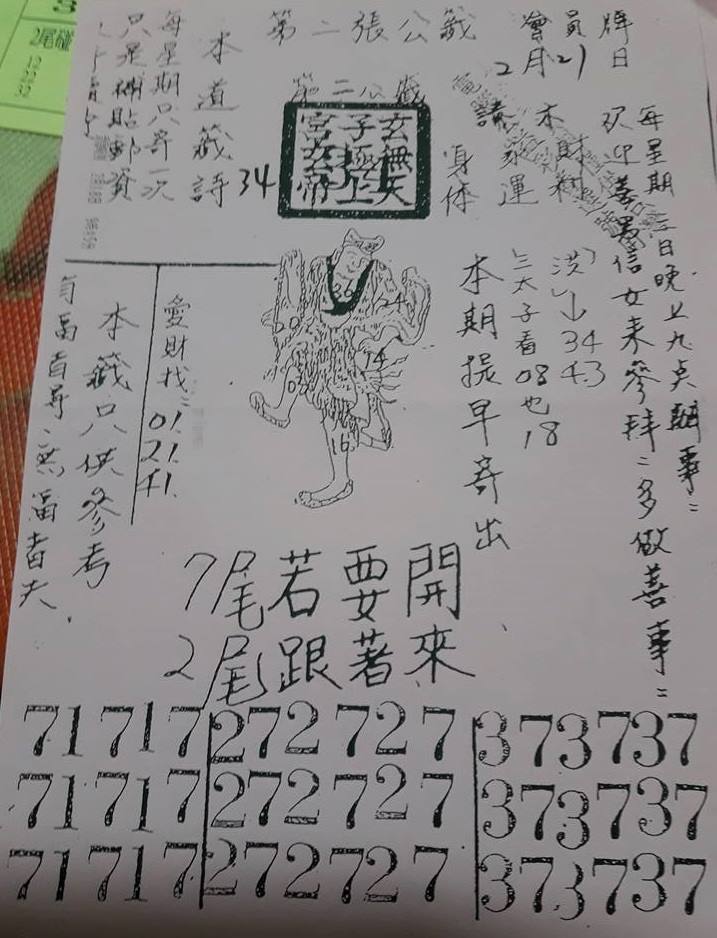 第二張公籤
會員牌
2月21日
第二公籤
玄無天
子極上
宮玄帝
34
本道籤詩
每星期只寄一次
只是補貼郵資
請
本財利
家運
身体
每星期三日晚上九点辦事:
歡迎善男信女来參拜:多做善事:
34
43
三太子看08也18
本期提早寄出
36
24
20
14
07
16
愛財找:
01.
21.
41.
本籤只供參考
7尾若要開
2尾跟著來
71717 272727 373737
71717 272727 373737
71717 272727 373737
2尾碰